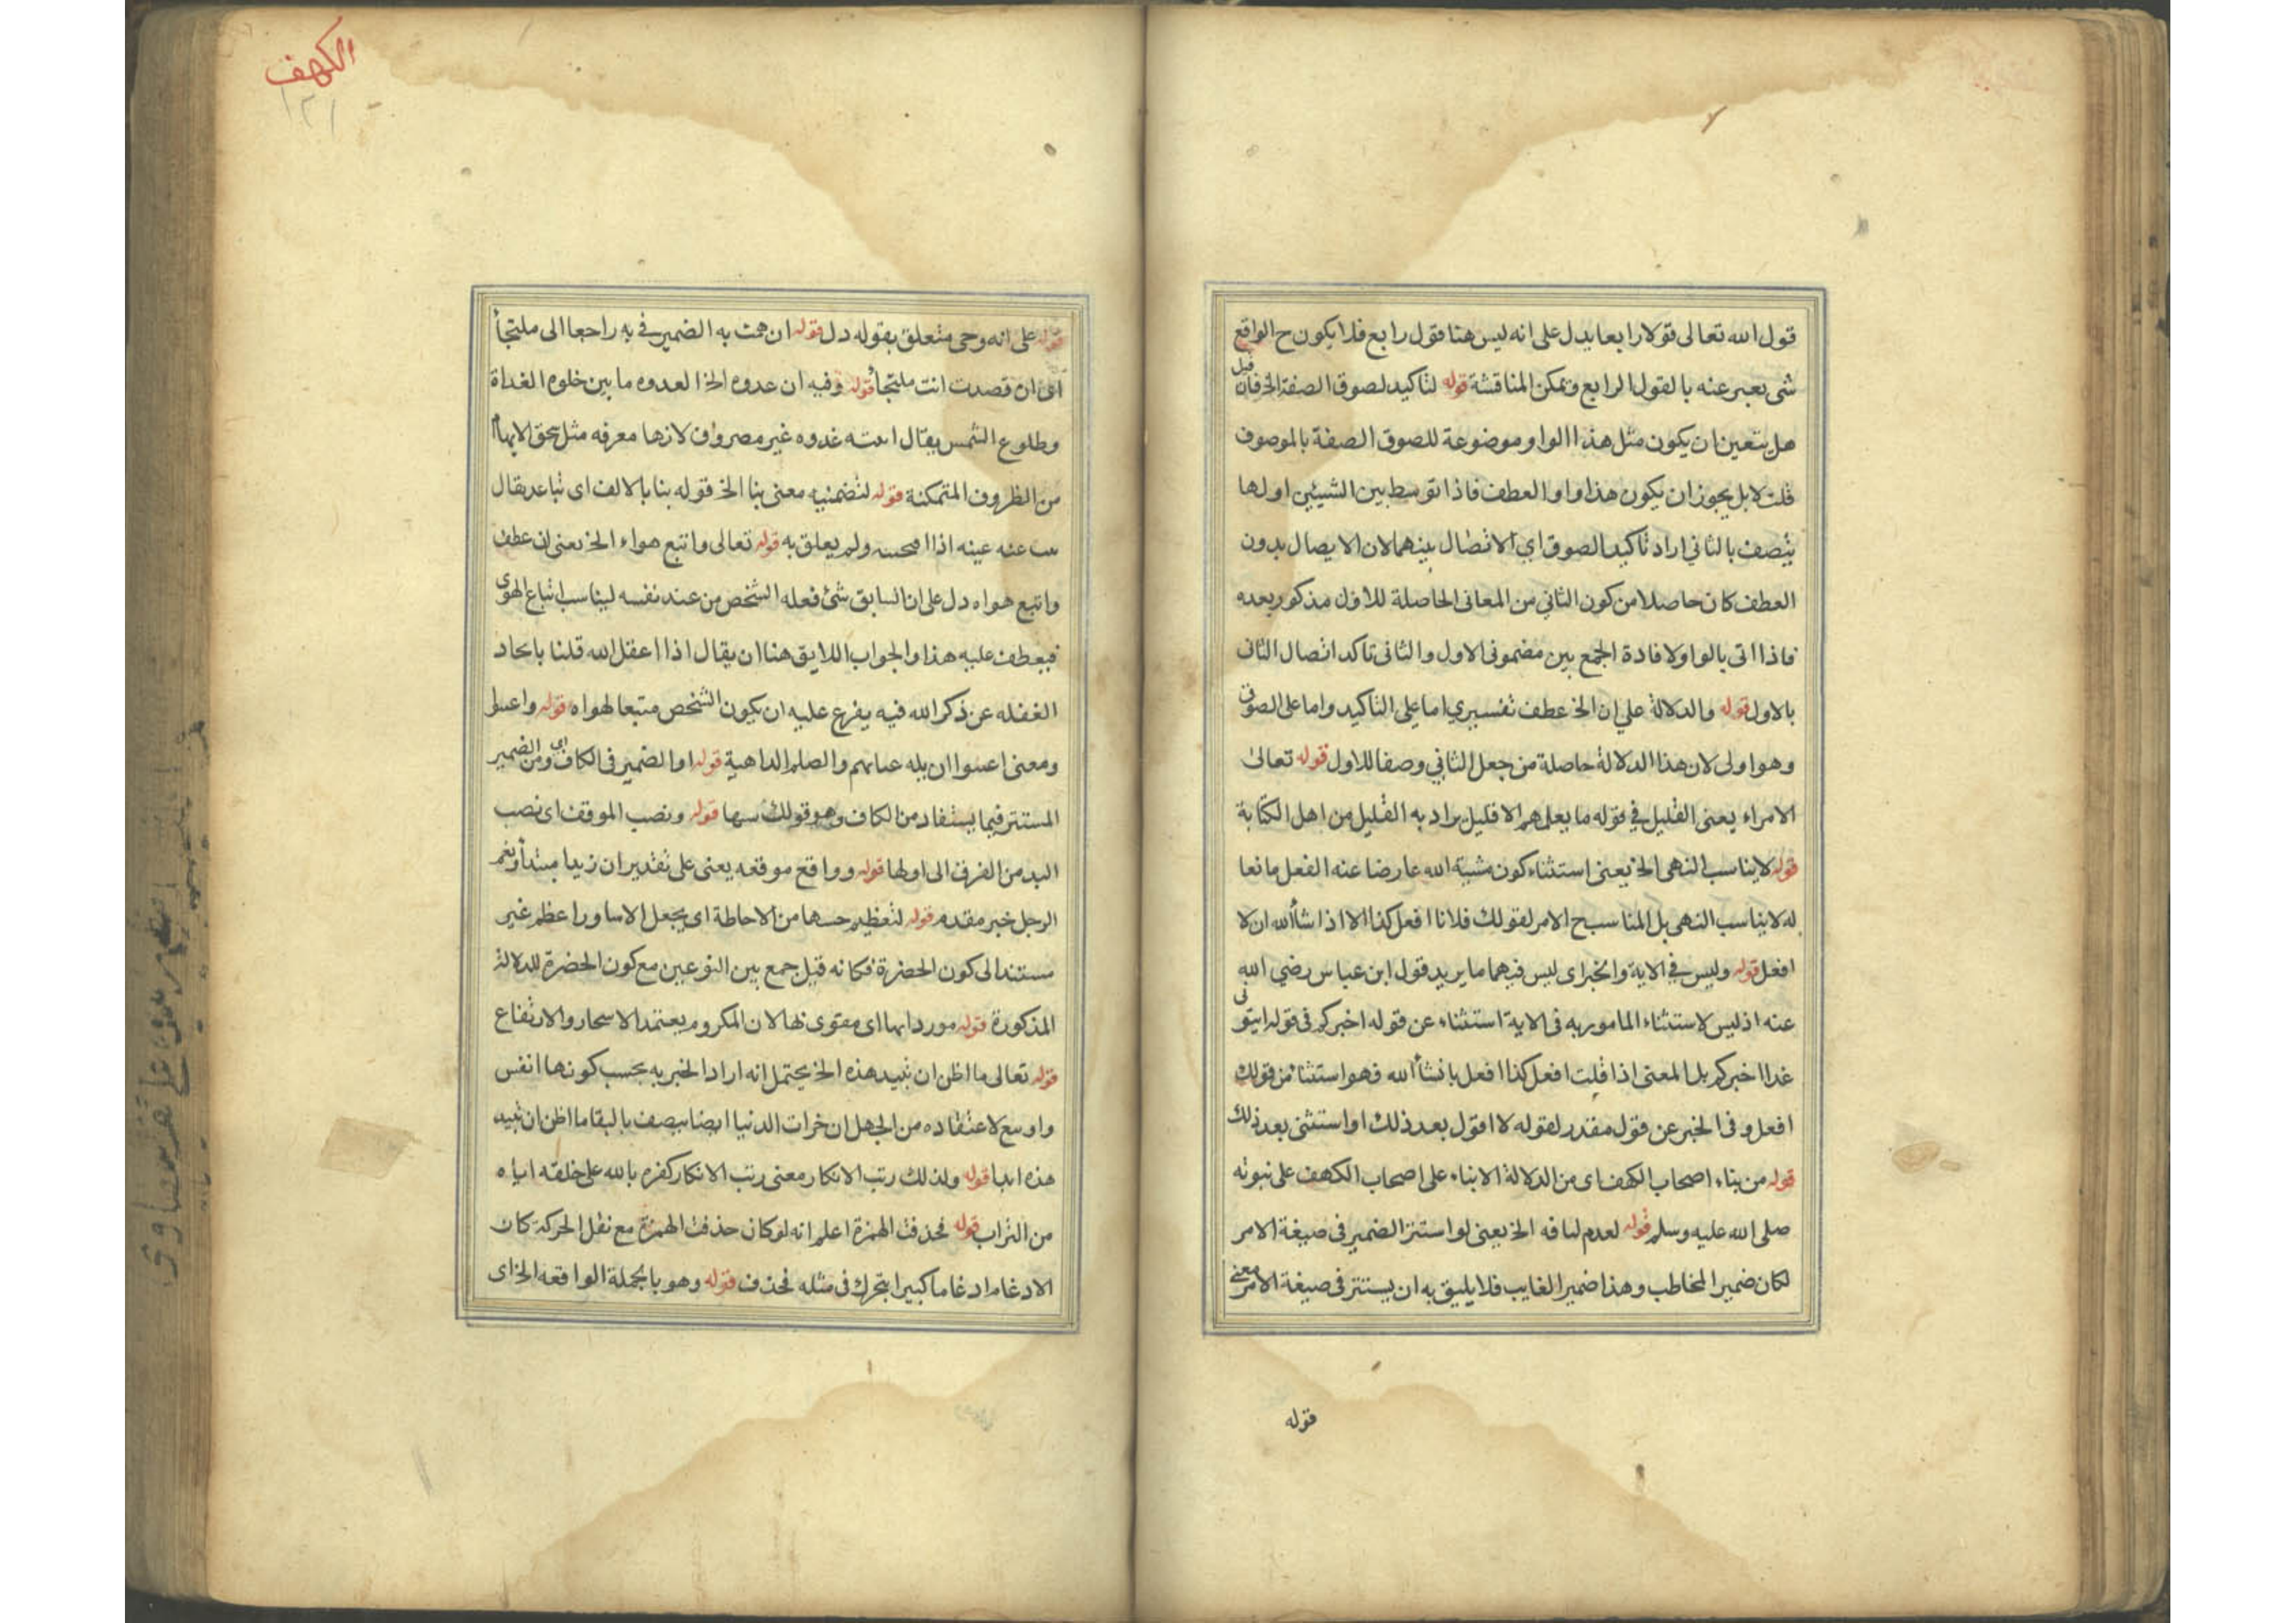 قول الله تعالى قولا رابعا يدل على انه ليس هنا قول رابع فلا يكون ح الواقع
شى يعبر عنه بالقول الرابع ويمكن المناقشة قوله لتاكيد لصوق الصفة الخ فان قيل
هل يتعين ان يكون مثل هذا الواو موضوعة للصوق الصفة بالموصوف
قلت لا بل يجوز ان يكون هذا واو العطف فاذا توسط بين الشيئين اولها
يتصف بالثاني اراد تاكيد الصوق اي الاتصال بينهما لان الايصال بدون
العطف كان حاصلا من كون الثاني من المعانى الحاصلة للاول مذكور بعده
فاذا اتى بالواو لافادة الجمع بين مضمونى الاول والثانى تاكد اتصال الثانى
بالاول قوله والدلالة على ان الخ عطف تفسيري اما على التاكيد واما على الصوق
وهو اولى لان هذا الدلالة حاصلة من جعل الثاني وصفا للاول قوله تعالى
الا مراء يعنى القليل في قوله ما يعلمهم الا قليل يراد به القليل من اهل الكتابة
قوله لا يناسب النهى الخ يعنى استثناء كون مشية الله عارضا عنه الفعل مانعا
له لا يناسب النهى بل المناسب ح الامر لقولك فلانا افعل كذا الا اذا شاء الله ان لا
افعل قوله وليس في الاية والخبر اى ليس فيهما ما يريد قول ابن عباس رضي الله
عنه اذ ليس لاستثناء المامور به فى الاية استثناء عن قوله اخبركم فى قوله ايتونى
غدا اخبركم بل المعنى اذا قلت افعل كذا افعل بانشأ الله فهو استثنا من قولك
افعل وفى الخبر عن قول مقدر لقوله لا اقول بعد ذلك او استثنى بعد ذلك
قوله من بناء اصحاب الكهف اى من الدلالة الابناء على اصحاب الكهف على نبوته
صلى الله عليه وسلم قوله لعدم لباقه الخ يعنى لو استتر الضمير فى صيغة الامر
لكان ضمير المخاطب وهذا ضمير الغايب فلا يليق به ان يستتر فى صيغة الامر معنى
قوله
الكهف
١٢١
قوله على انه وحى متعلق بقوله دل قوله ان همت به الضمير فى به راجعا الى ملتجأ
اى ان قصدت انت ملتجأ قوله وفيه ان غدوه الخ العدوه ما بين خلوه الغداة
وطلوع الشمس يقال اتيته غدوه غير مصروف لانها معرفه مثل سحق الا انها
من الظروف المتمكنة قوله لتضمنه معنى بنا الخ قوله بنا بالالف اى تباعد يقال
عنه عينه اذا ولم يعلق به قوله تعالى واتبع هواء الخ يعنى ان عطف
واتبع هواه دل على ان السابق شئ فعله الشخص من عند نفسه ليناسب اتباع الهوى
فيعطف عليه هذا والجواب اللايق هنا ان يقال اذا اغفل الله قلنا باتحاد
الغفله عن ذكر الله فيه يفرع عليه ان يكون الشخص متبعا لهواه قوله
ومعنى ان بله والصلم الداهية قوله او الضمير فى الكاف اى ومن الضمير
المستتر فيما يستفاد من الكاف وهو قولك قوله ونصب الموقف اى نصب
اليد من الفرق الى اولها قوله وواقع موقعه يعنى على تقدير ان زيدا مبتدأ ونعم
الرجل خبر مقدم قوله لتعظيم حسها من الاحاطة اى يجعل الاساور اعظم غير
مستند الى كون الحضرة فكانه قيل جمع بين النوعين مع كون الحضرة للدلالة
المذكورة قوله اى مقوى لها لان المكروم يعتمد الاسحار والارتفاع
قوله تعالى ما اظن ان تبيد هذه الخ يحتمل انه اراد الخبر به بحسب كونها انفس
واوسع لاعتقاده من الجهل ان خرات الدنيا ايضا يتصف بالبقا ما اظن ان تبيد
هذه ابدا قوله ولذلك رتب الانكار معنى رتب الانكار كفره بالله على خلقه اياه
من التراب قوله فحذفت الهمزة اعلم انه لو كان حذفت الهمزة مع نقل الحركة كان
الادغام ادغاما كبيرا بتحرك فى مثله فحذف قوله وهو بالجملة الواقعه الخ اى